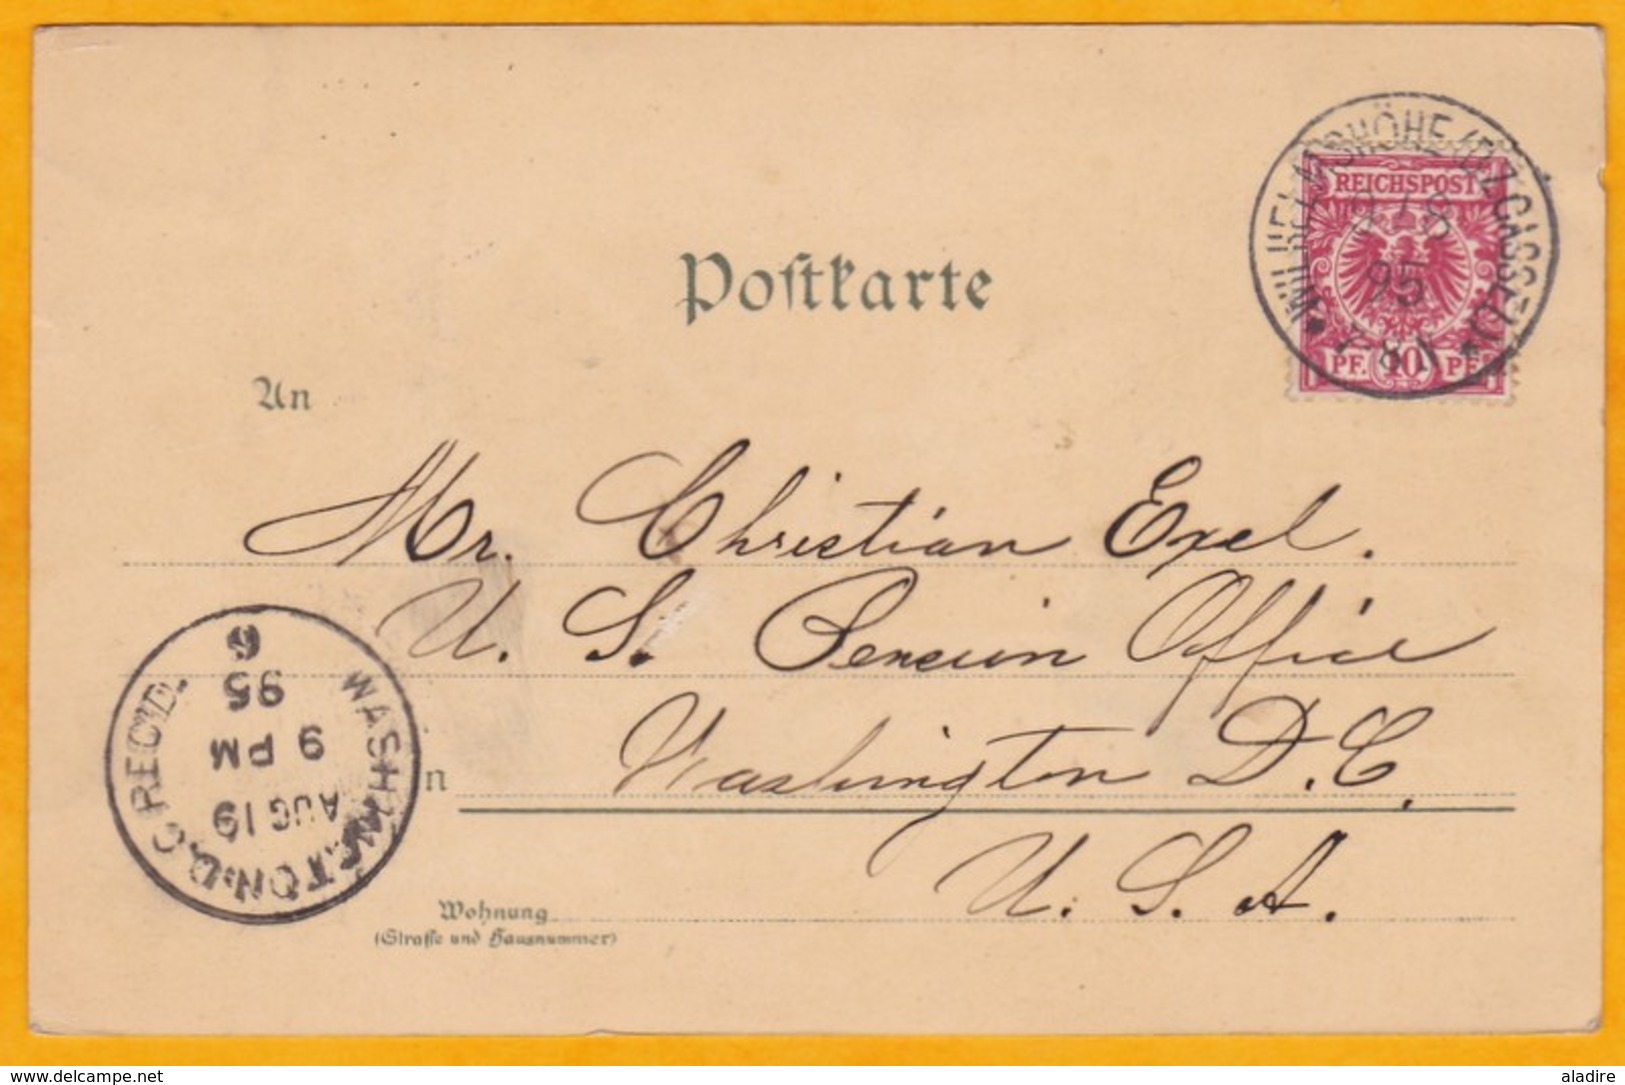 WILHELMSHÖHE (BZ. CASSEL)
REICHSPOST
95
PF. 10 PF.
Postkarte
An
Mr. Christian Exel.
U. S. Pension Office
Washington D. C.
n
U. S. A.
WASHINGTON, D.C. REC'D.
AUG 19
9 PM
95
6
Wohnung
(Straße und Hausnummer)
www.delcampe.net
aladire